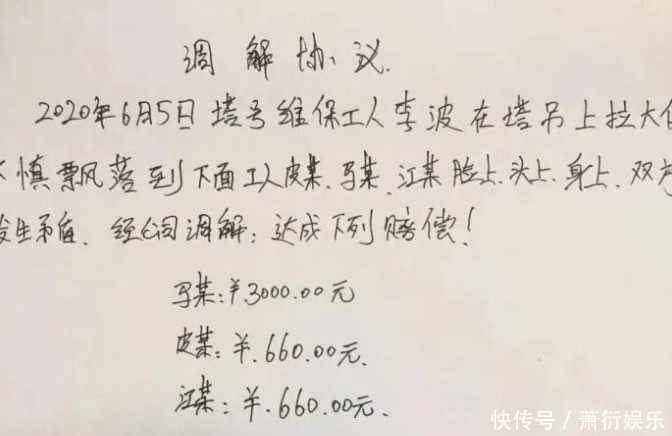 调解协议.
2020年6月5日塔号维保工人李波在塔吊上拉大
慎飘落到下面工人皮某.马某.江某脸上.头上.身上.双方
发生矛盾.经公司调解;达成下列赔偿!
马某:¥3000.00元
皮某:¥.660.00元.
江某:¥.660.00元.
快传号/萧衍娱乐